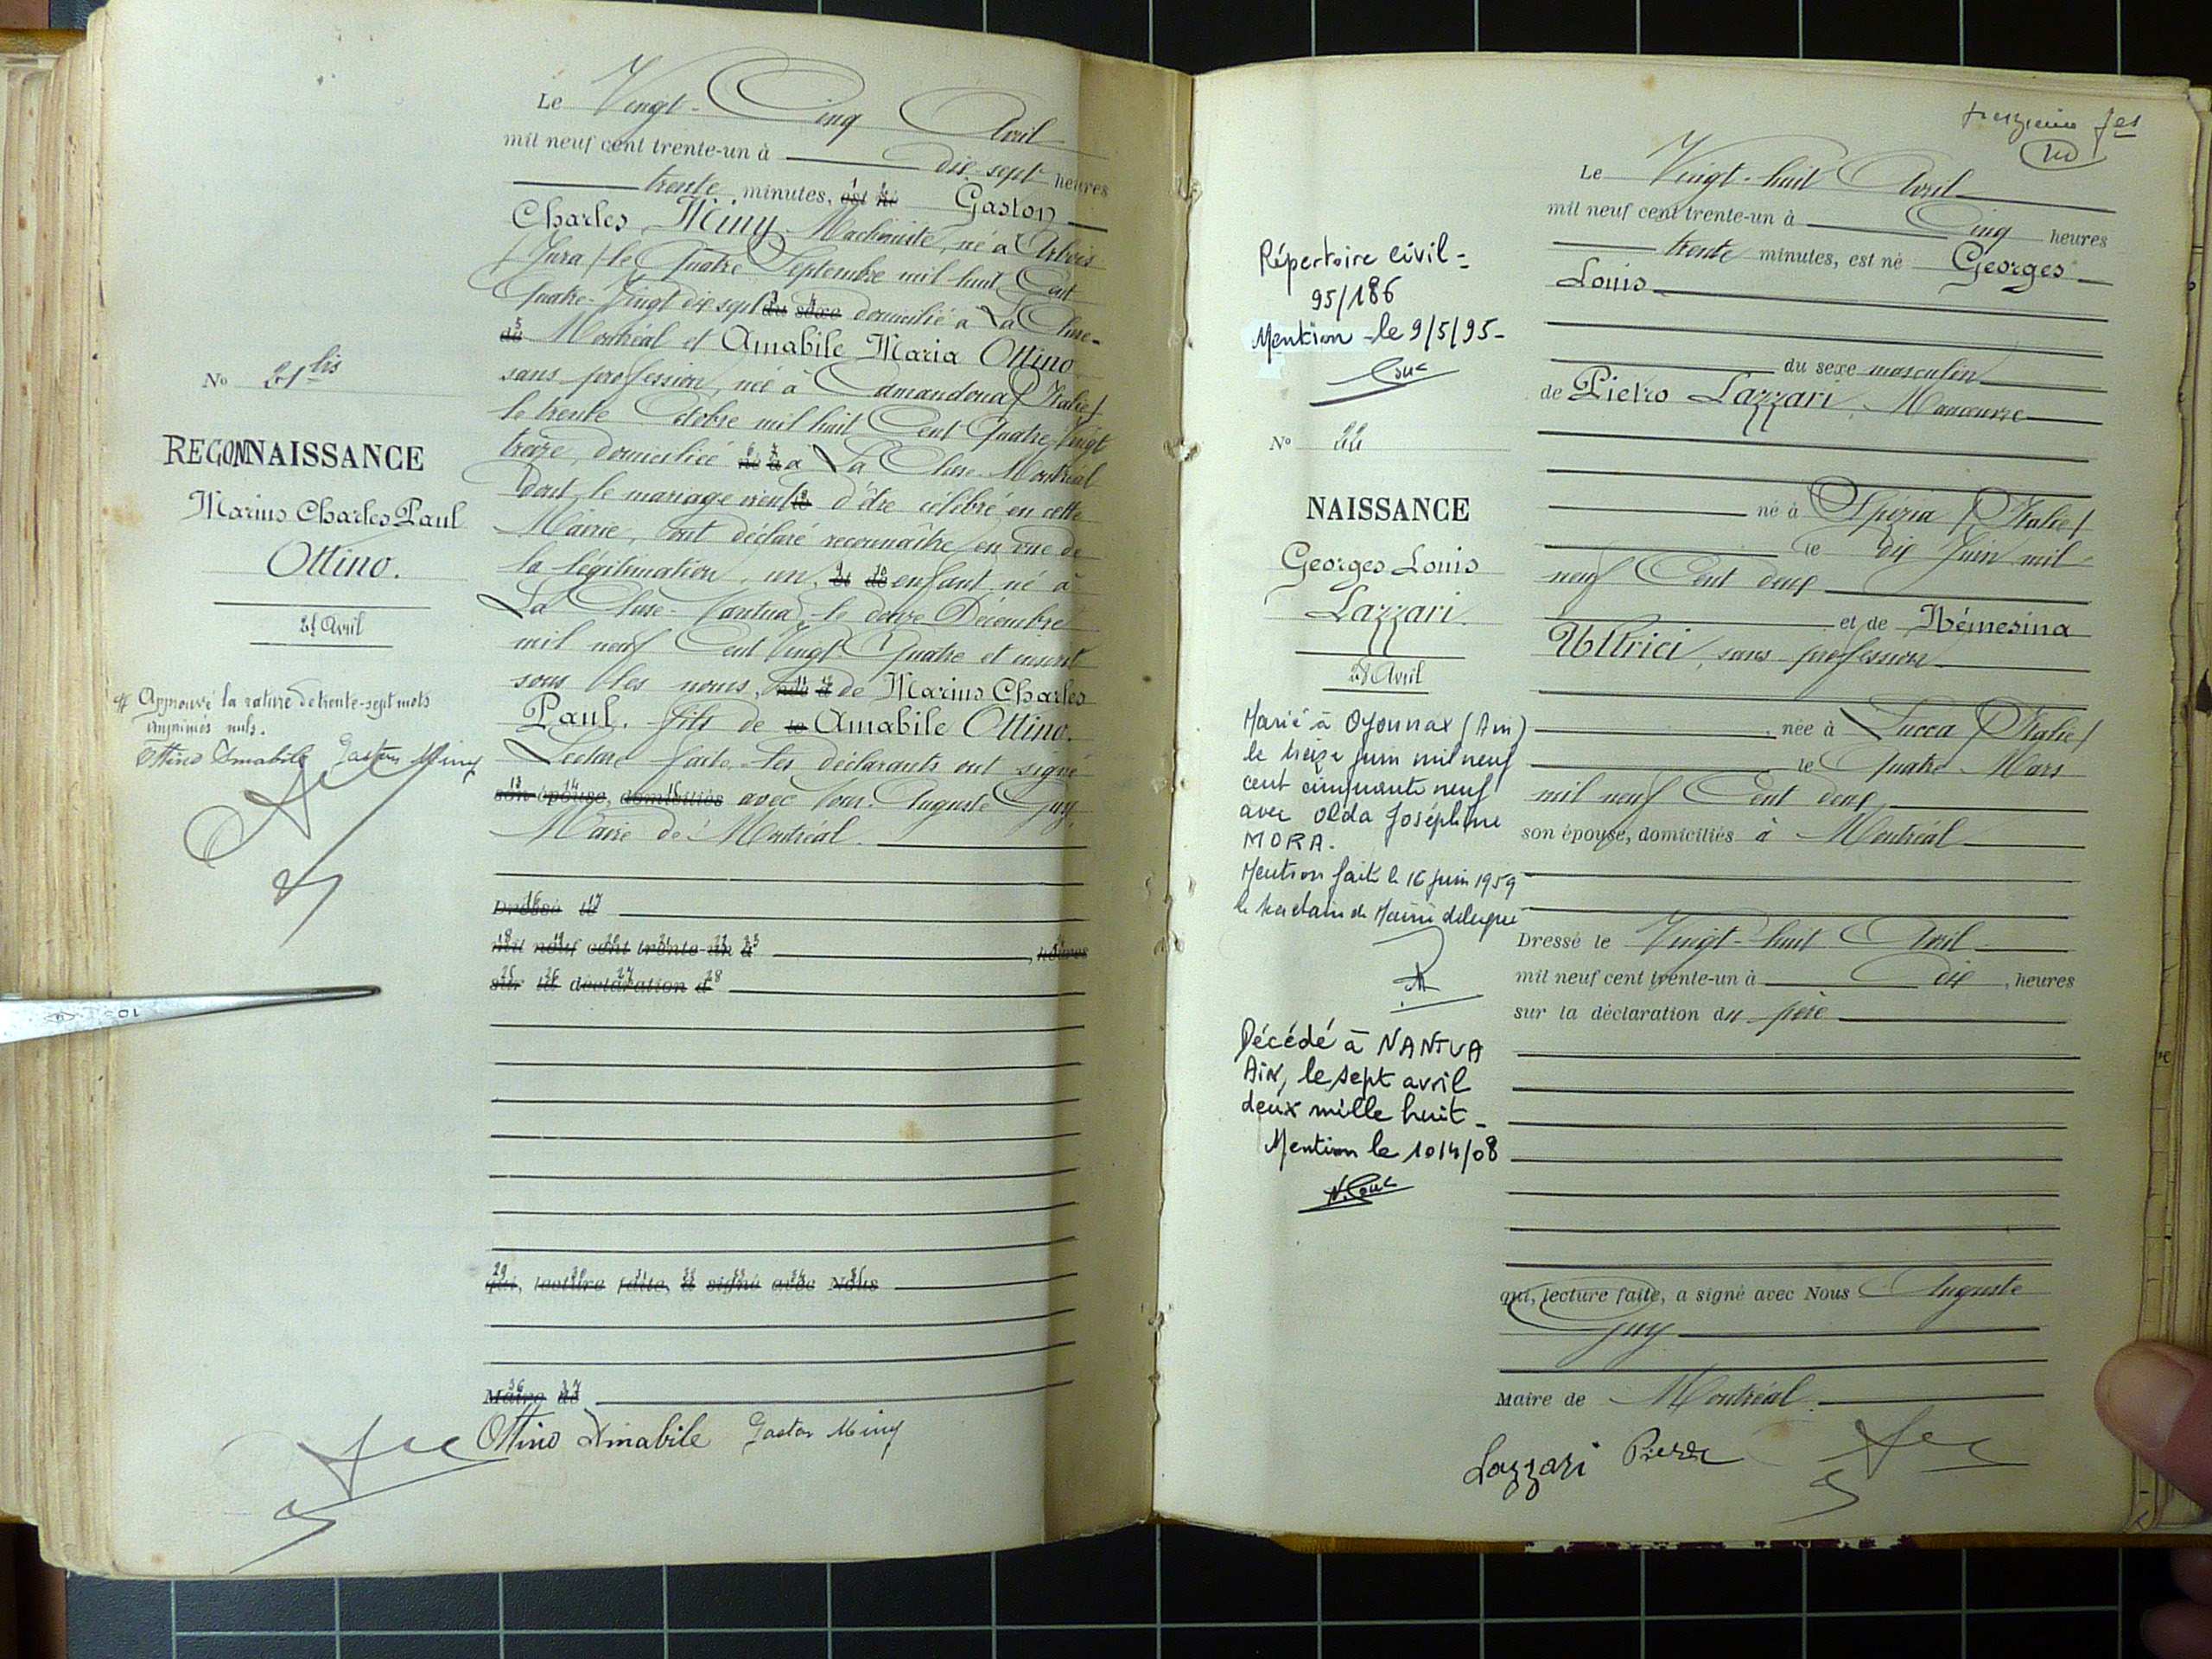 Le Vingt-Cinq Avril
mil neuf cent trente-un à dix sept heures
trente minutes, est né Gaston
Charles Miny Machiniste, né à Arbois
(Jura) le Quatre Septembre mil huit Cent
Quatre-Vingt dix sept du sexe domicilié à La Cluse-
de Montréal et Amabile Maria Ottino
sans profession, née à Camandona (Italie)
le trente Octobre mil huit Cent Quatre Vingt
treize, domiciliée à La Cluse-Montréal
dont le mariage vient d'être célébré en cette
Mairie, ont déclaré reconnaître en vue de
la légitimation, un enfant né à
La Cluse-Nantua, le douze Décembre
mil neuf Cent Vingt-Quatre et inscrit
sous les noms, de Marius Charles
Paul, fils de le Amabile Ottino.
Lecture faite, les déclarants ont signé
son épouse, domiciliés avec Nous Auguste Guy,
Maire de Montréal.
Dressé le
mil neuf cent trente-un à , heures
sur la déclaration d
qui, lecture faite, a signé avec Nous
Maire de
Ottino Amabile Gaston Miny
No 21 bis
RECONNAISSANCE
Marius Charles Paul
Ottino.
25 Avril
Approuvé la rature de trente-sept mots
imprimés nuls.
Ottino Amabile Gaston Miny
Répertoire civil -
95/186
Mention le 9/5/95 -
No 22
NAISSANCE
Georges Louis
Lazzari.
28 Avril
Marié à Oyonnax (Ain)
le treize juin mil neuf
cent cinquante neuf
avec Olda Joséphine
MORA.
Mention faite le 16 juin 1959
le secrétaire de Mairie délégué
Décédé à NANTUA
Ain, le sept avril
deux mille huit -
Mention le 10/4/08
Le Vingt-huit Avril
mil neuf cent trente-un à Cinq heures
trente minutes, est né Georges
Louis
du sexe masculin
de Pietro Lazzari, Manœuvre
né à Spézia (Italie)
le dix Juin mil
neuf Cent deux
et de Némesina
Ulltrici, sans profession
née à Lucca (Italie)
le Quatre Mars
mil neuf Cent deux
son épouse, domiciliés à Montréal
Dressé le Vingt-huit Avril
mil neuf cent trente-un à dix , heures
sur la déclaration du père
qui, lecture faite, a signé avec Nous Auguste
Guy
Maire de Montréal.
Lazzari Pierre